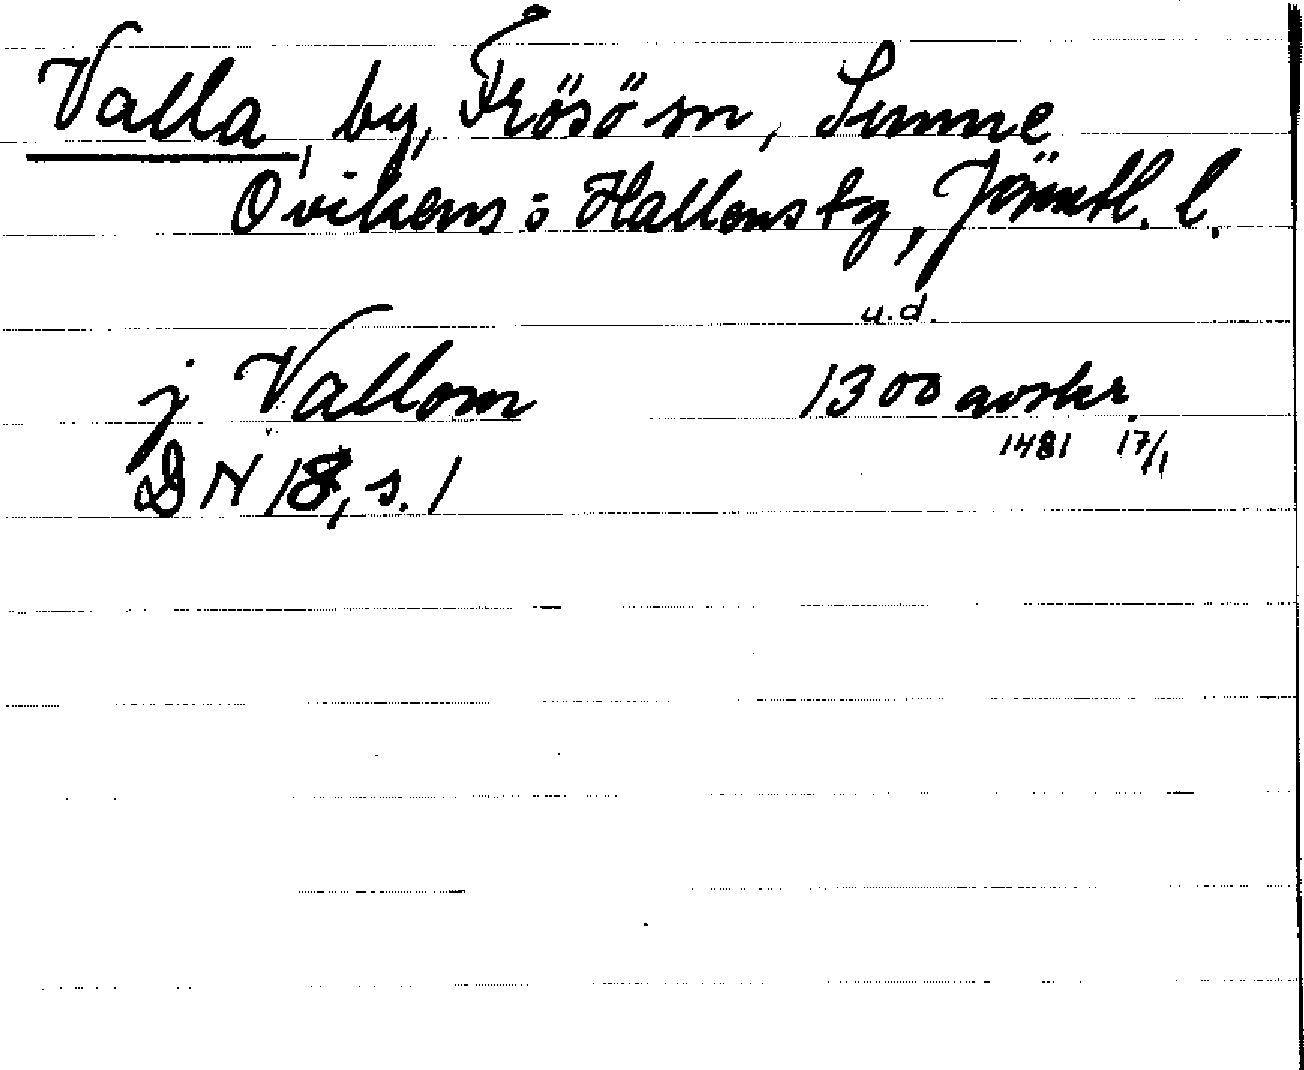 Valla, by, Frösö sn, Sunne
Ovikens o Hallens tg, Jämtl. l.
u.d.
j Vallom 1300 avskr.
1481 17/1
DN 18, s. 1